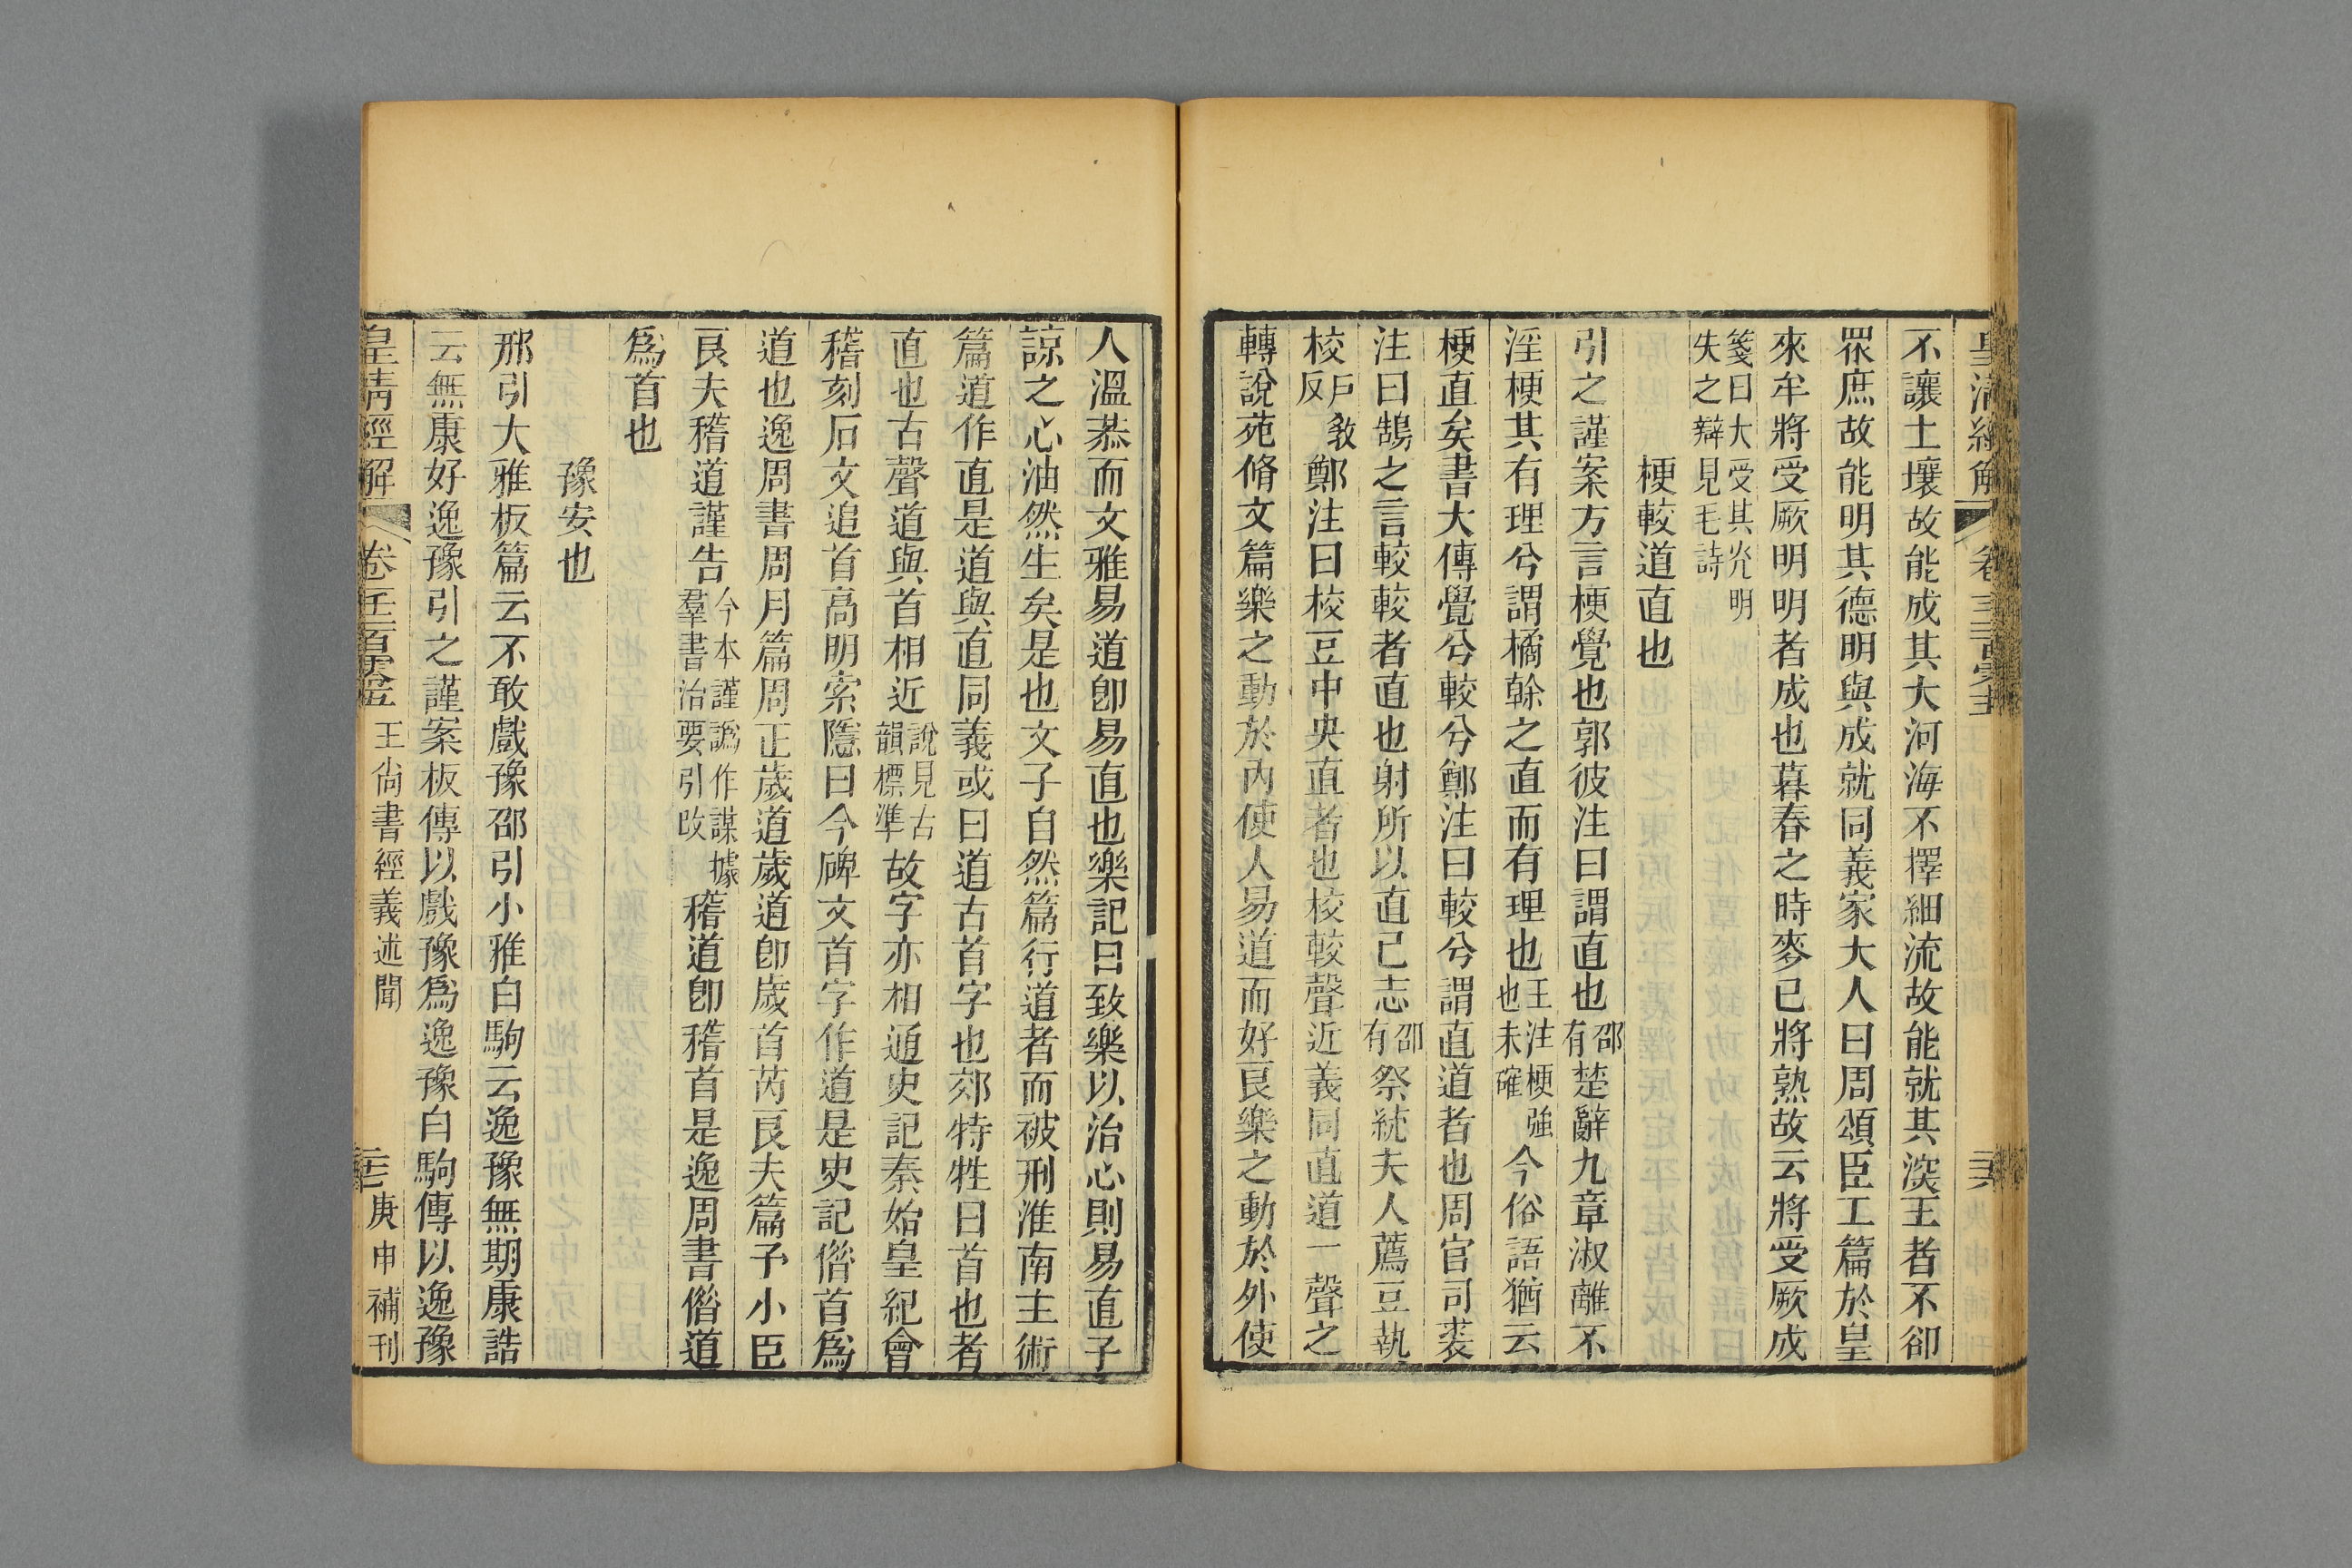 皇清經解
卷
不讓土壤故能成其大河海不擇細流故能就其深王者不卻
眾庶故能明其德明與成就同義家大人曰周頌臣工篇於皇
來牟將受厥明明者成也暮春之時麥已將熟故云將受厥成
箋曰大受其光明
失之辯見毛詩
梗較道直也
引之謹案方言梗覺也郭彼注曰謂直也邵有楚辭九章淑離不
淫梗其有理兮謂橘榦之直而有理也王注梗強也未確今俗語猶云
梗直矣書大傳覺兮較兮鄭注曰較兮謂直道者也周官司裘
注曰鵠之言較較者直也射所以直己志邵有祭統夫人薦豆執
校戶教反鄭注曰校豆中央直者也校較聲近義同直道一聲之
轉說苑脩文篇樂之動於內使人易道而好良樂之動於外使
人溫恭而文雅易道卽易直也樂記曰致樂以治心則易直子
諒之心油然生矣是也文子自然篇行道者而被刑淮南主術
篇道作直是道與直同義或曰道古首字也郊特牲曰首也者
直也古聲道與首相近說見古韻標準故字亦相通史記秦始皇紀會
稽刻石文追首高明索隱曰今碑文首字作道是史記借首爲
道也逸周書周月篇周正歲道歲道卽歲首芮良夫篇予小臣
良夫稽道謀告今本謹譌作謀據羣書治要引改稽道卽稽首是逸周書借道
爲首也
豫安也
邢引大雅板篇云不敢戲豫邵引小雅白駒云逸豫無期康誥
云無康好逸豫引之謹案板傳以戲豫爲逸豫白駒傳以逸豫
皇清經解
卷壬百零五
王尙書經義述聞
庚申補刊